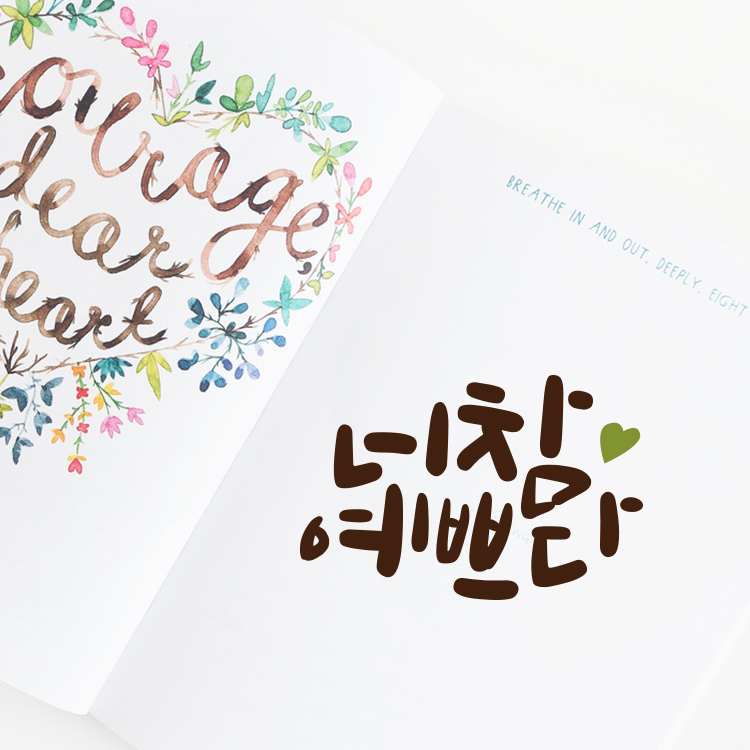 courage,
dear
heart
BREATHE IN AND OUT. DEEPLY. EIGHT
너 참
예쁘다